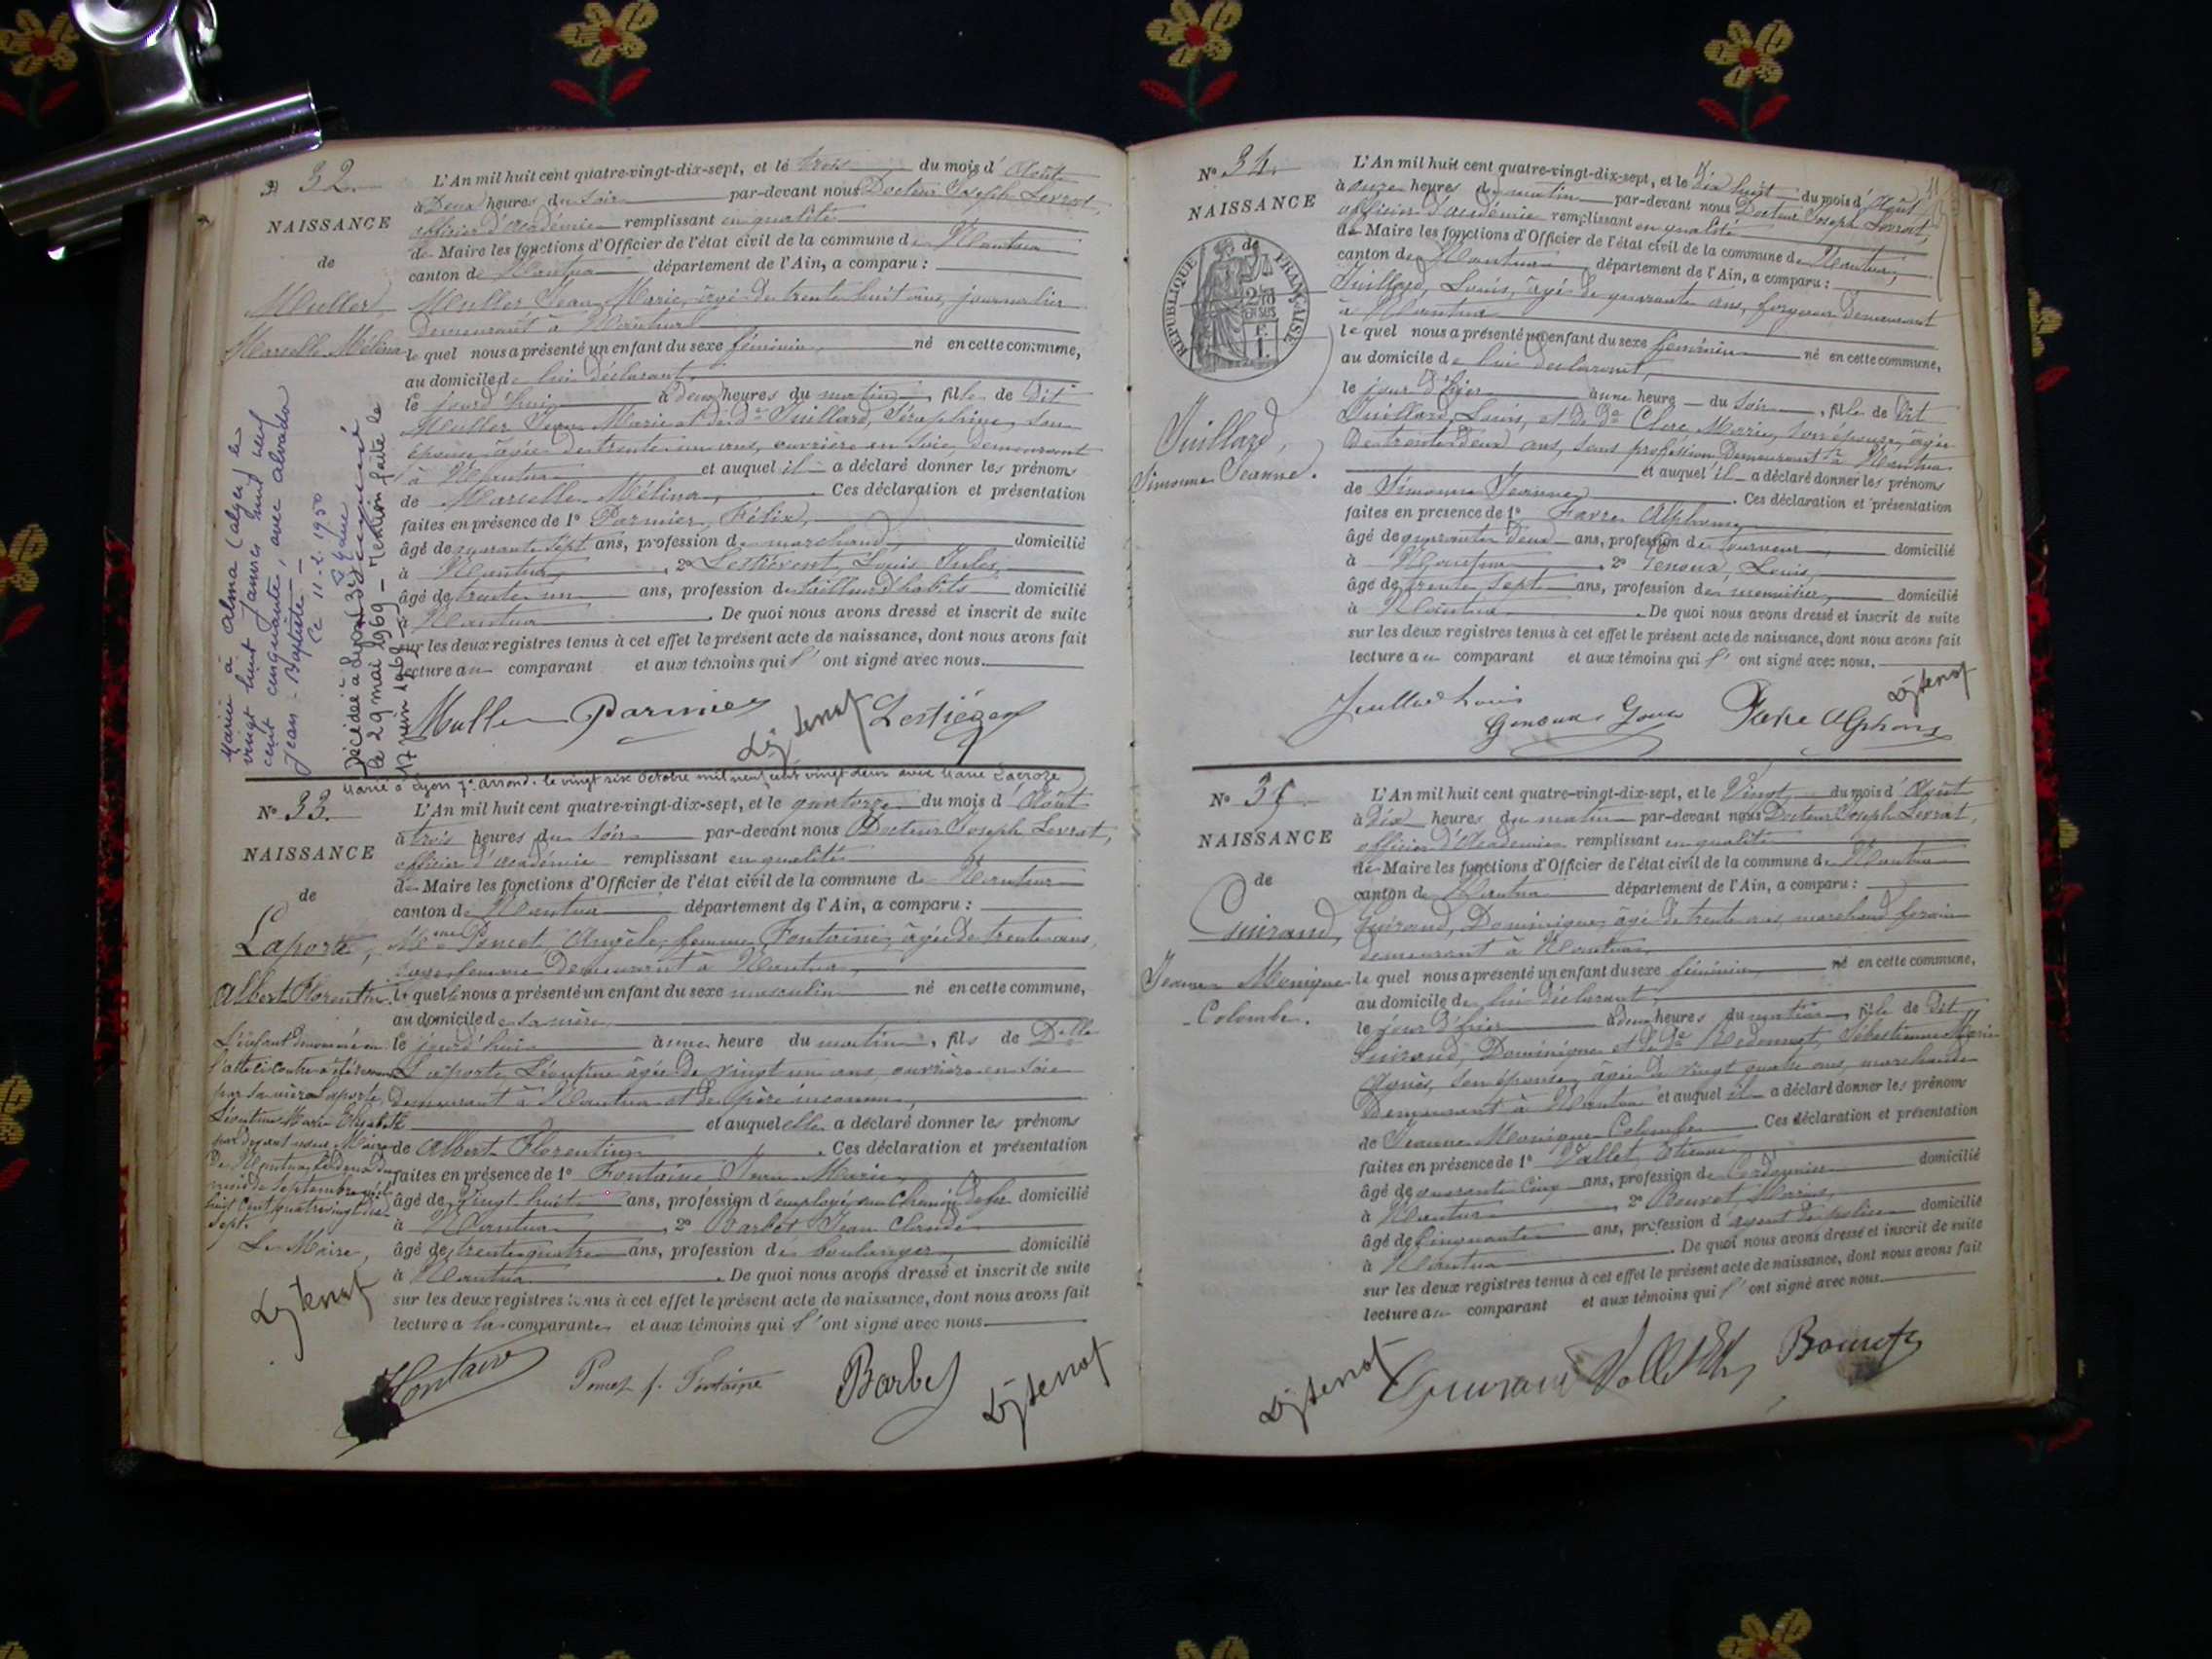 N° 32.
NAISSANCE
de
Muller,
Marcelle Mélina
L'An mil huit cent quatre-vingt-dix-sept, et le trois du mois d'Août
à Deux heures du soir par-devant nous Docteur Joseph Levrat,
officier d'académie remplissant en qualité
de Maire les fonctions d'Officier de l'état civil de la commune de Nantua
canton de Nantua département de l'Ain, a comparu :
Muller Jean Marie, âgé de trente huit ans, journalier
demeurant à Nantua
lequel nous a présenté un enfant du sexe féminin, né en cette commune,
au domicile de lui déclarant,
le jourd'hui à deux heures du matin, fille de dit
Muller Jean Marie et de de Juillard, Séraphine, son
épouse âgée de trente un ans, ouvrière en soie, demeurant
à Nantua et auquel il a déclaré donner les prénoms
de Marcelle Mélina, Ces déclaration et présentation
faites en présence de 1° Parmier, Félix,
âgé de quarante sept ans, profession de marchand domicilié
à Nantua, 2° Louis Jules,
âgé de trente un ans, profession de tailleur d'habits domicilié
à Nantua. De quoi nous avons dressé et inscrit de suite
sur les deux registres tenus à cet effet le présent acte de naissance, dont nous avons fait
lecture au comparant et aux témoins qui l'ont signé avec nous.
Muller Parmier
Mariée à Alma (Alger) le
vingt huit janvier mil neuf
cent cinquante, avec Alvado
Jean-Baptiste —
Le 11-2-1950
Décédée à Lyon 3e
le 29 mai 1969 — Mention faite le
17 juin 1969
Marié à Lyon 7e arrond. le vingt six octobre mil neuf cent vingt deux avec Marie Lacroze
N° 33.
NAISSANCE
de
Laporte,
Albert Florentin.
L'An mil huit cent quatre-vingt-dix-sept, et le quatorze du mois d'Août
à trois heures du soir par-devant nous Docteur Joseph Levrat,
officier d'académie remplissant en qualité
de Maire les fonctions d'Officier de l'état civil de la commune de Nantua
canton de Nantua département de l'Ain, a comparu :
Mme Poncet, Angèle, femme Fontaine, âgée de trente ans,
sage-femme demeurant à Nantua,
laquelle nous a présenté un enfant du sexe masculin né en cette commune,
au domicile de sa mère,
le jourd'hui à une heure du matin, fils de Delle
Laporte, Léontine âgée de vingt un ans, ouvrière en soie
demeurant à Nantua et de père inconnu,
et auquel elle a déclaré donner les prénoms
de Albert Florentin. Ces déclaration et présentation
faites en présence de 1° Fontaine Jean Marie,
âgé de vingt huit ans, profession d'employé au chemin de fer domicilié
à Nantua, 2° Barbet Jean Claude
âgé de trente quatre ans, profession de boulanger, domicilié
à Nantua. De quoi nous avons dressé et inscrit de suite
sur les deux registres tenus à cet effet le présent acte de naissance, dont nous avons fait
lecture à la comparante et aux témoins qui l'ont signé avec nous.
L'enfant dénommé en
l'acte ci-contre a été reconnu
par sa mère Laporte,
Léontine Marie Elisabeth
par devant nous, Maire
de Nantua, le deux du
mois de septembre mil
huit cent quatre vingt dix
sept.
Le Maire,
Fontaine Poncet f. Fontaine Barbet
N° 34.
NAISSANCE
de
RÉPUBLIQUE FRANÇAISE
Juillard,
Simonne Jeanne.
L'An mil huit cent quatre-vingt-dix-sept, et le dix huit du mois d'Août
à onze heures du matin par-devant nous Docteur Joseph Levrat,
officier d'académie remplissant en qualité
de Maire les fonctions d'Officier de l'état civil de la commune de Nantua,
canton de Nantua département de l'Ain, a comparu :
Juillard, Louis, âgé de quarante ans, forgeron demeurant
à Nantua
lequel nous a présenté un enfant du sexe féminin né en cette commune,
au domicile de lui déclarant,
le jour d'hier à une heure du soir, fille de dit
Juillard, Louis, et de de Clerc Marie, son épouse, âgée
de trente deux ans, sans profession demeurant à Nantua
et auquel il a déclaré donner les prénoms
de Simonne Jeanne. Ces déclaration et présentation
faites en présence de 1° Favre Alphonse,
âgé de quarante deux ans, profession de tourneur, domicilié
à Nantua, 2° Genoux, Louis,
âgé de trente sept ans, profession de menuisier, domicilié
à Nantua. De quoi nous avons dressé et inscrit de suite
sur les deux registres tenus à cet effet le présent acte de naissance, dont nous avons fait
lecture au comparant et aux témoins qui l'ont signé avec nous.
Juillard Louis Genoux Louis Favre Alphonse
N° 35.
NAISSANCE
de
Guirand,
Jeanne Monique
Colombe.
L'An mil huit cent quatre-vingt-dix-sept, et le Vingt du mois d'Août
à dix heures du matin par-devant nous Docteur Joseph Levrat,
officier d'Académie remplissant en qualité
de Maire les fonctions d'Officier de l'état civil de la commune de Nantua
canton de Nantua département de l'Ain, a comparu :
Guirand, Dominique, âgé de trente ans, marchand forain
demeurant à Nantua,
lequel nous a présenté un enfant du sexe féminin, né en cette commune,
au domicile de lui déclarant,
le jour d'hier à deux heures du matin, fille de dit
Guirand, Dominique et de de Sébastienne Marie
Agnès, son épouse, âgée de vingt quatre ans, marchande
demeurant à Nantua et auquel il a déclaré donner les prénoms
de Jeanne Monique Colombe Ces déclaration et présentation
faites en présence de 1° Vallet, Etienne
âgé de quarante cinq ans, profession de Cordonnier domicilié
à Nantua, 2° Bouvet, Marius,
âgé de cinquante ans, profession d'agent de police domicilié
à Nantua. De quoi nous avons dressé et inscrit de suite
sur les deux registres tenus à cet effet le présent acte de naissance, dont nous avons fait
lecture au comparant et aux témoins qui l'ont signé avec nous.
Guirand Vallet Bouvet